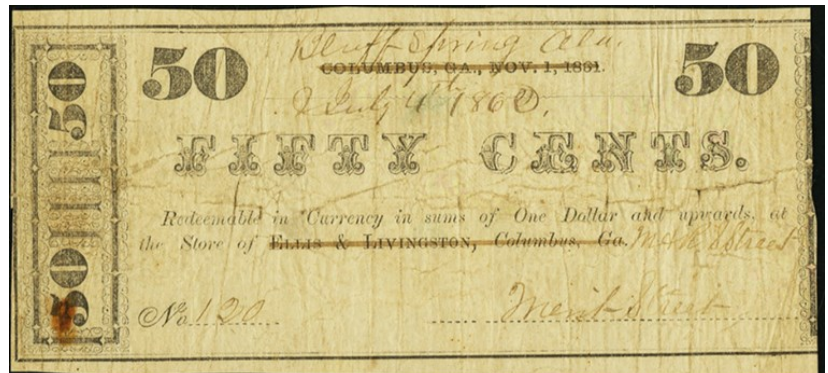 50 Bluff Spring Ala. 50
COLUMBUS, GA., NOV. 1, 1861.
July 4th 1862.
FIFTY CENTS.
Redeemable in Currency in sums of One Dollar and upwards, at
the Store of ELLIS & LIVINGSTON, Columbus, Ga. M & R S Street
No 120 Merit Street
50
50